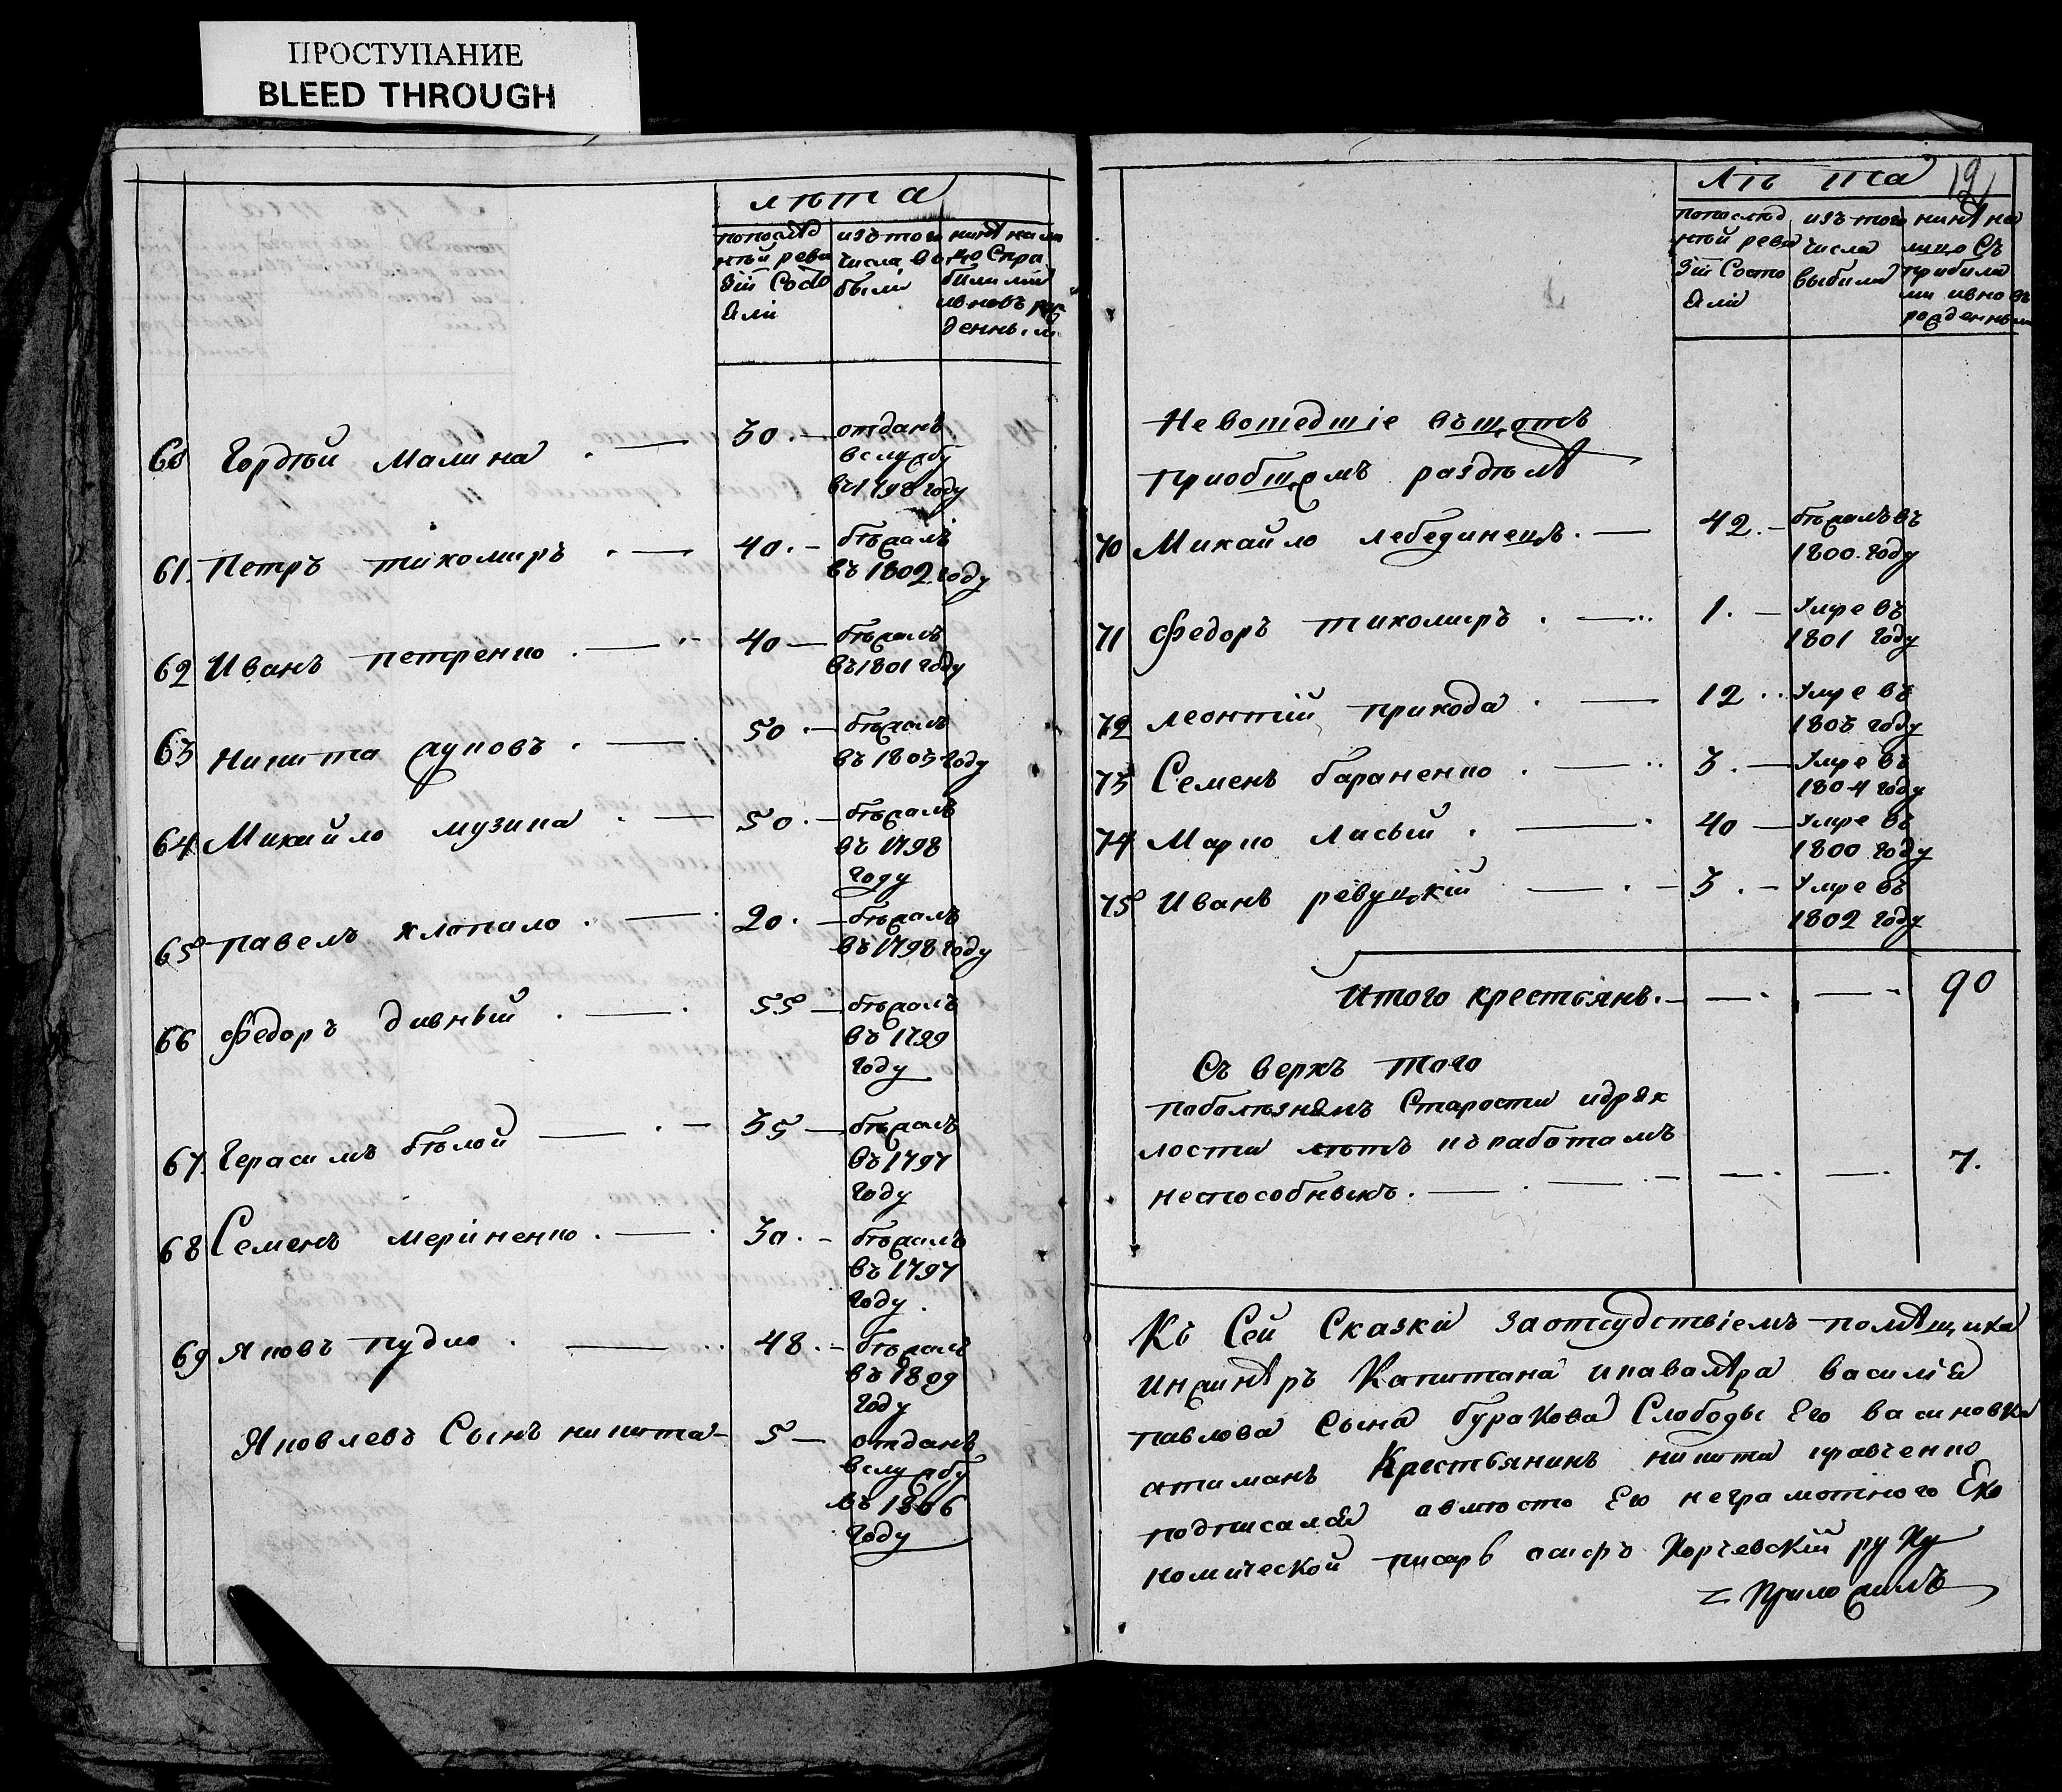 ПРОСТУПАНИЕ
BLEED THROUGH
лѣта
попослѣд
ней реви
зіи Состо
яли
изътого
числа вы
были
нынѣ на ли
цо Спри
былыми
ивновь рож
денными
60 Гордѣй Малина . — 30 . — отданъ
вслужбу
въ 1798 году
61. Петръ тихомиръ . — 40 . — бѣжалъ
въ 1802 году
62 Иванъ петренко . — 40 — бѣжалъ
въ 1801 году
63 Никита жуковъ . — 50 . — бѣжалъ
въ 1803 году
64 Михайло музика . — 50 . — бѣжалъ
въ 1798
году
65 павелъ хлопало . — 20 . — бѣжалъ
въ 1798 году
66 Федоръ дивный . — 55 — бѣжалъ
въ 1799
году
67. Герасимъ бѣлой — . — 35 — бѣжалъ
въ 1797
году
68 Семенъ мериненко . — 30 . — бѣжалъ
въ 1797
году .
69 Яковъ пудло . — 48 . — бѣжалъ
въ 1809
году
Яковлевъ Сынъ никита — 5 — отданъ
вслужбу
въ 1806
году
лѣта 12
попослѣд
ней реви
зіи Состо
яли
изътого
числа
выбыли
нынѣ на
лицо Съ
прибылы
ми ивновь
рожденными
Невошедшіе въщотъ
приобщемъ раздѣлѣ
70 Михайло лебединецъ . — 42 . — бѣжалъ въ
1800 . году
71 Федоръ тихомиръ . — 1 . — Умре въ
1801 году
72 леонтій прихода . — 12 . . Умре въ
1803 году
73 Семенъ бараненко . — 3 . — Умре въ
1804 году
74 Марко Лисый . — 40 — Умре въ
1800 году
75 Иванъ ревуцкій — . — 3 . — Умре въ
1802 году
Итого крестьянъ . — — . — . 90
Съ верхъ того
поболѣзнямъ Старости идрях
лости лѣтъ къработамъ
неспособныхъ . — . — . — — . — . 7.
Къ Сей Сказки заотсудствіемъ помѣщика
инжинѣръ Капитана икавалѣра василія
павлова Сына буракова Слободы Его васиновки
атиманъ Крестьянинъ никита кравченко
подписался авмѣсто Его неграмотного Еко
номической писарь осифъ Корчевскій руку
приложилъ